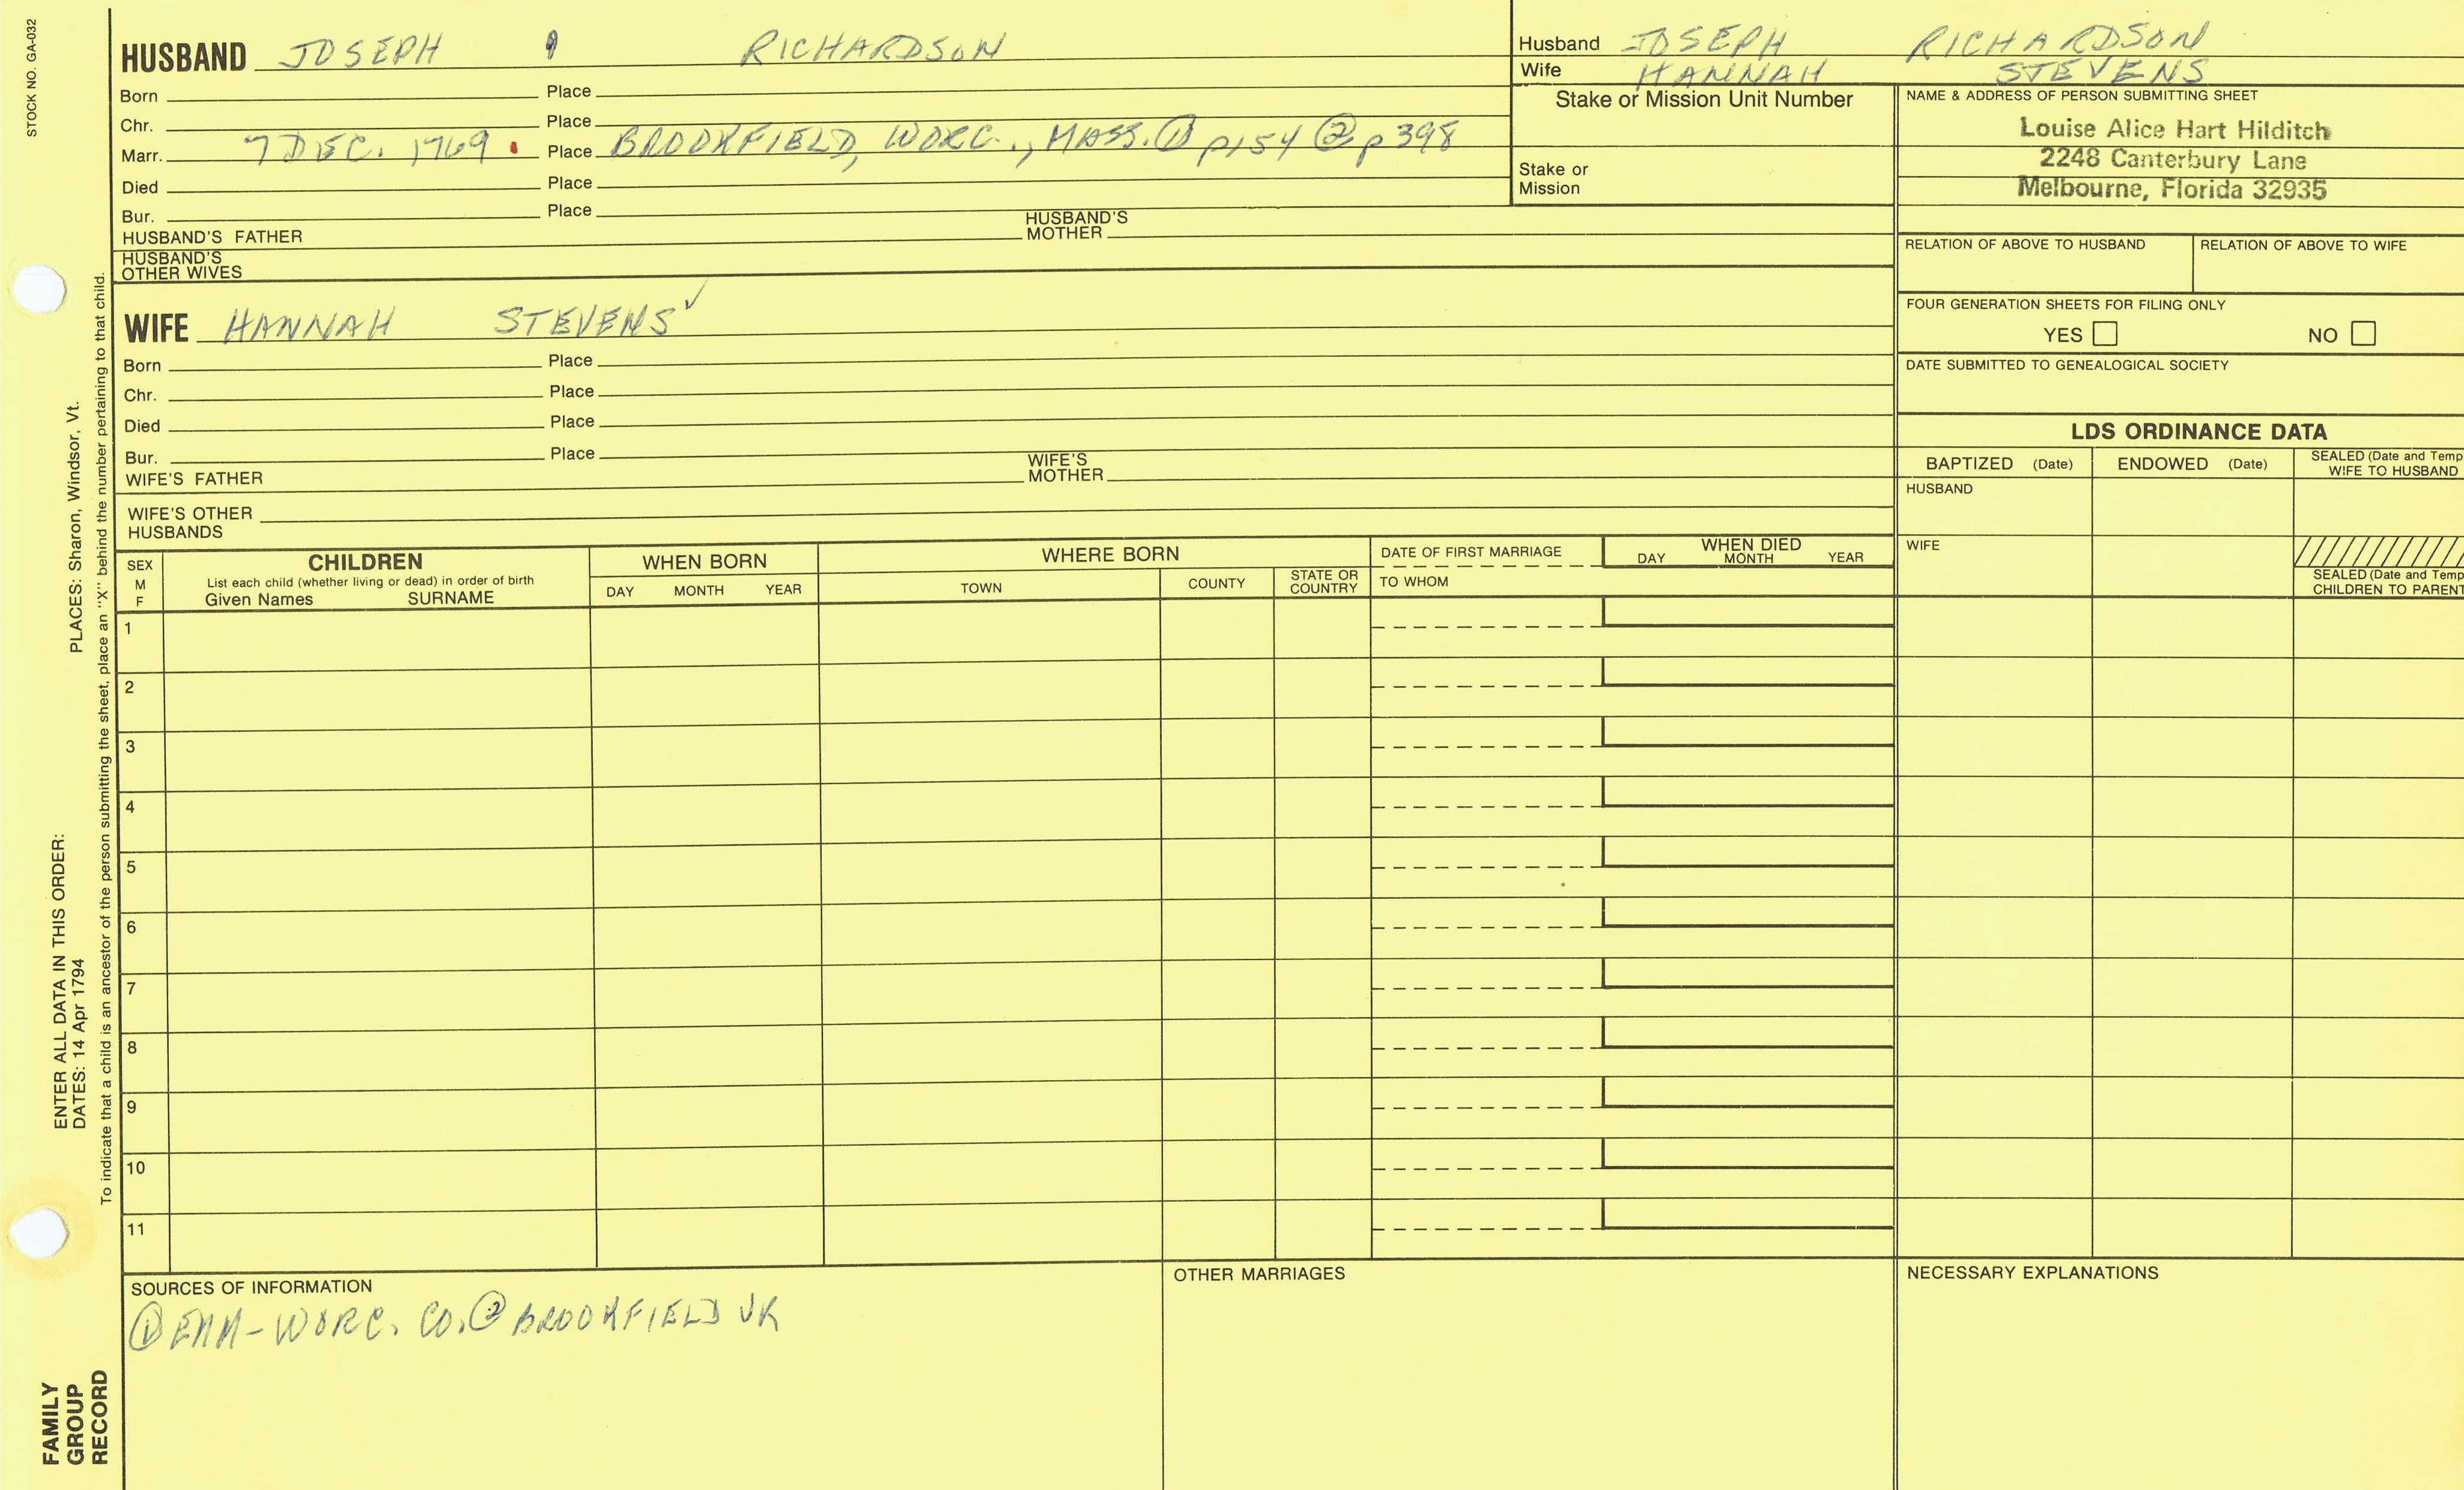 STOCK NO. GA-032
HUSBAND JOSEPH RICHARDSON
Born Place
Chr. Place
Marr. 7 DEC. 1769. Place BROOKFIELD, WORC., MASS. ① p154 ② p398
Died Place
Bur. Place
HUSBAND'S FATHER HUSBAND'S MOTHER
HUSBAND'S
OTHER WIVES
Husband JOSEPH RICHARDSON
Wife HANNAH STEVENS
Stake or Mission Unit Number
Stake or
Mission
NAME & ADDRESS OF PERSON SUBMITTING SHEET
Louise Alice Hart Hilditch
2248 Canterbury Lane
Melbourne, Florida 32935
RELATION OF ABOVE TO HUSBAND RELATION OF ABOVE TO WIFE
FOUR GENERATION SHEETS FOR FILING ONLY
YES NO
DATE SUBMITTED TO GENEALOGICAL SOCIETY
WIFE HANNAH STEVENS ✓
Born Place
Chr. Place
Died Place
Bur. Place
WIFE'S FATHER WIFE'S MOTHER
WIFE'S OTHER
HUSBANDS
LDS ORDINANCE DATA
BAPTIZED (Date) ENDOWED (Date) SEALED (Date and Temp
WIFE TO HUSBAND
HUSBAND
WIFE
SEALED (Date and Temp
CHILDREN TO PARENT
SEX
M
F
CHILDREN
List each child (whether living or dead) in order of birth
Given Names SURNAME
WHEN BORN
DAY MONTH YEAR
WHERE BORN
TOWN COUNTY STATE OR COUNTRY
DATE OF FIRST MARRIAGE
TO WHOM
WHEN DIED
DAY MONTH YEAR
1
2
3
4
5
6
7
8
9
10
11
SOURCES OF INFORMATION
① EMM-WORC. CO. ② BROOKFIELD VR
OTHER MARRIAGES
NECESSARY EXPLANATIONS
PLACES: Sharon, Windsor, Vt.
ENTER ALL DATA IN THIS ORDER:
DATES: 14 Apr 1794
To indicate that a child is an ancestor of the person submitting the sheet, place an "X" behind the number pertaining to that child.
FAMILY
GROUP
RECORD